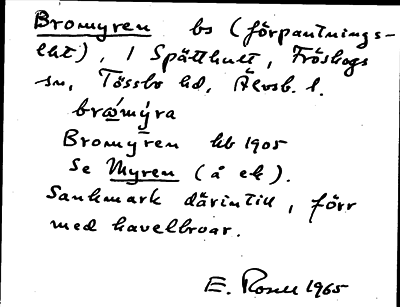 Bromyren bs (förpantnings-
lht), 1 Spätthult, Fröskogs
sn, Tössbo hd, Älvsb. l.
brὼmýra
Bromyren hb 1905
Se Myren (å ek).
Sankmark därintill, förr
med kavelbroar.
E. Rosell 1965